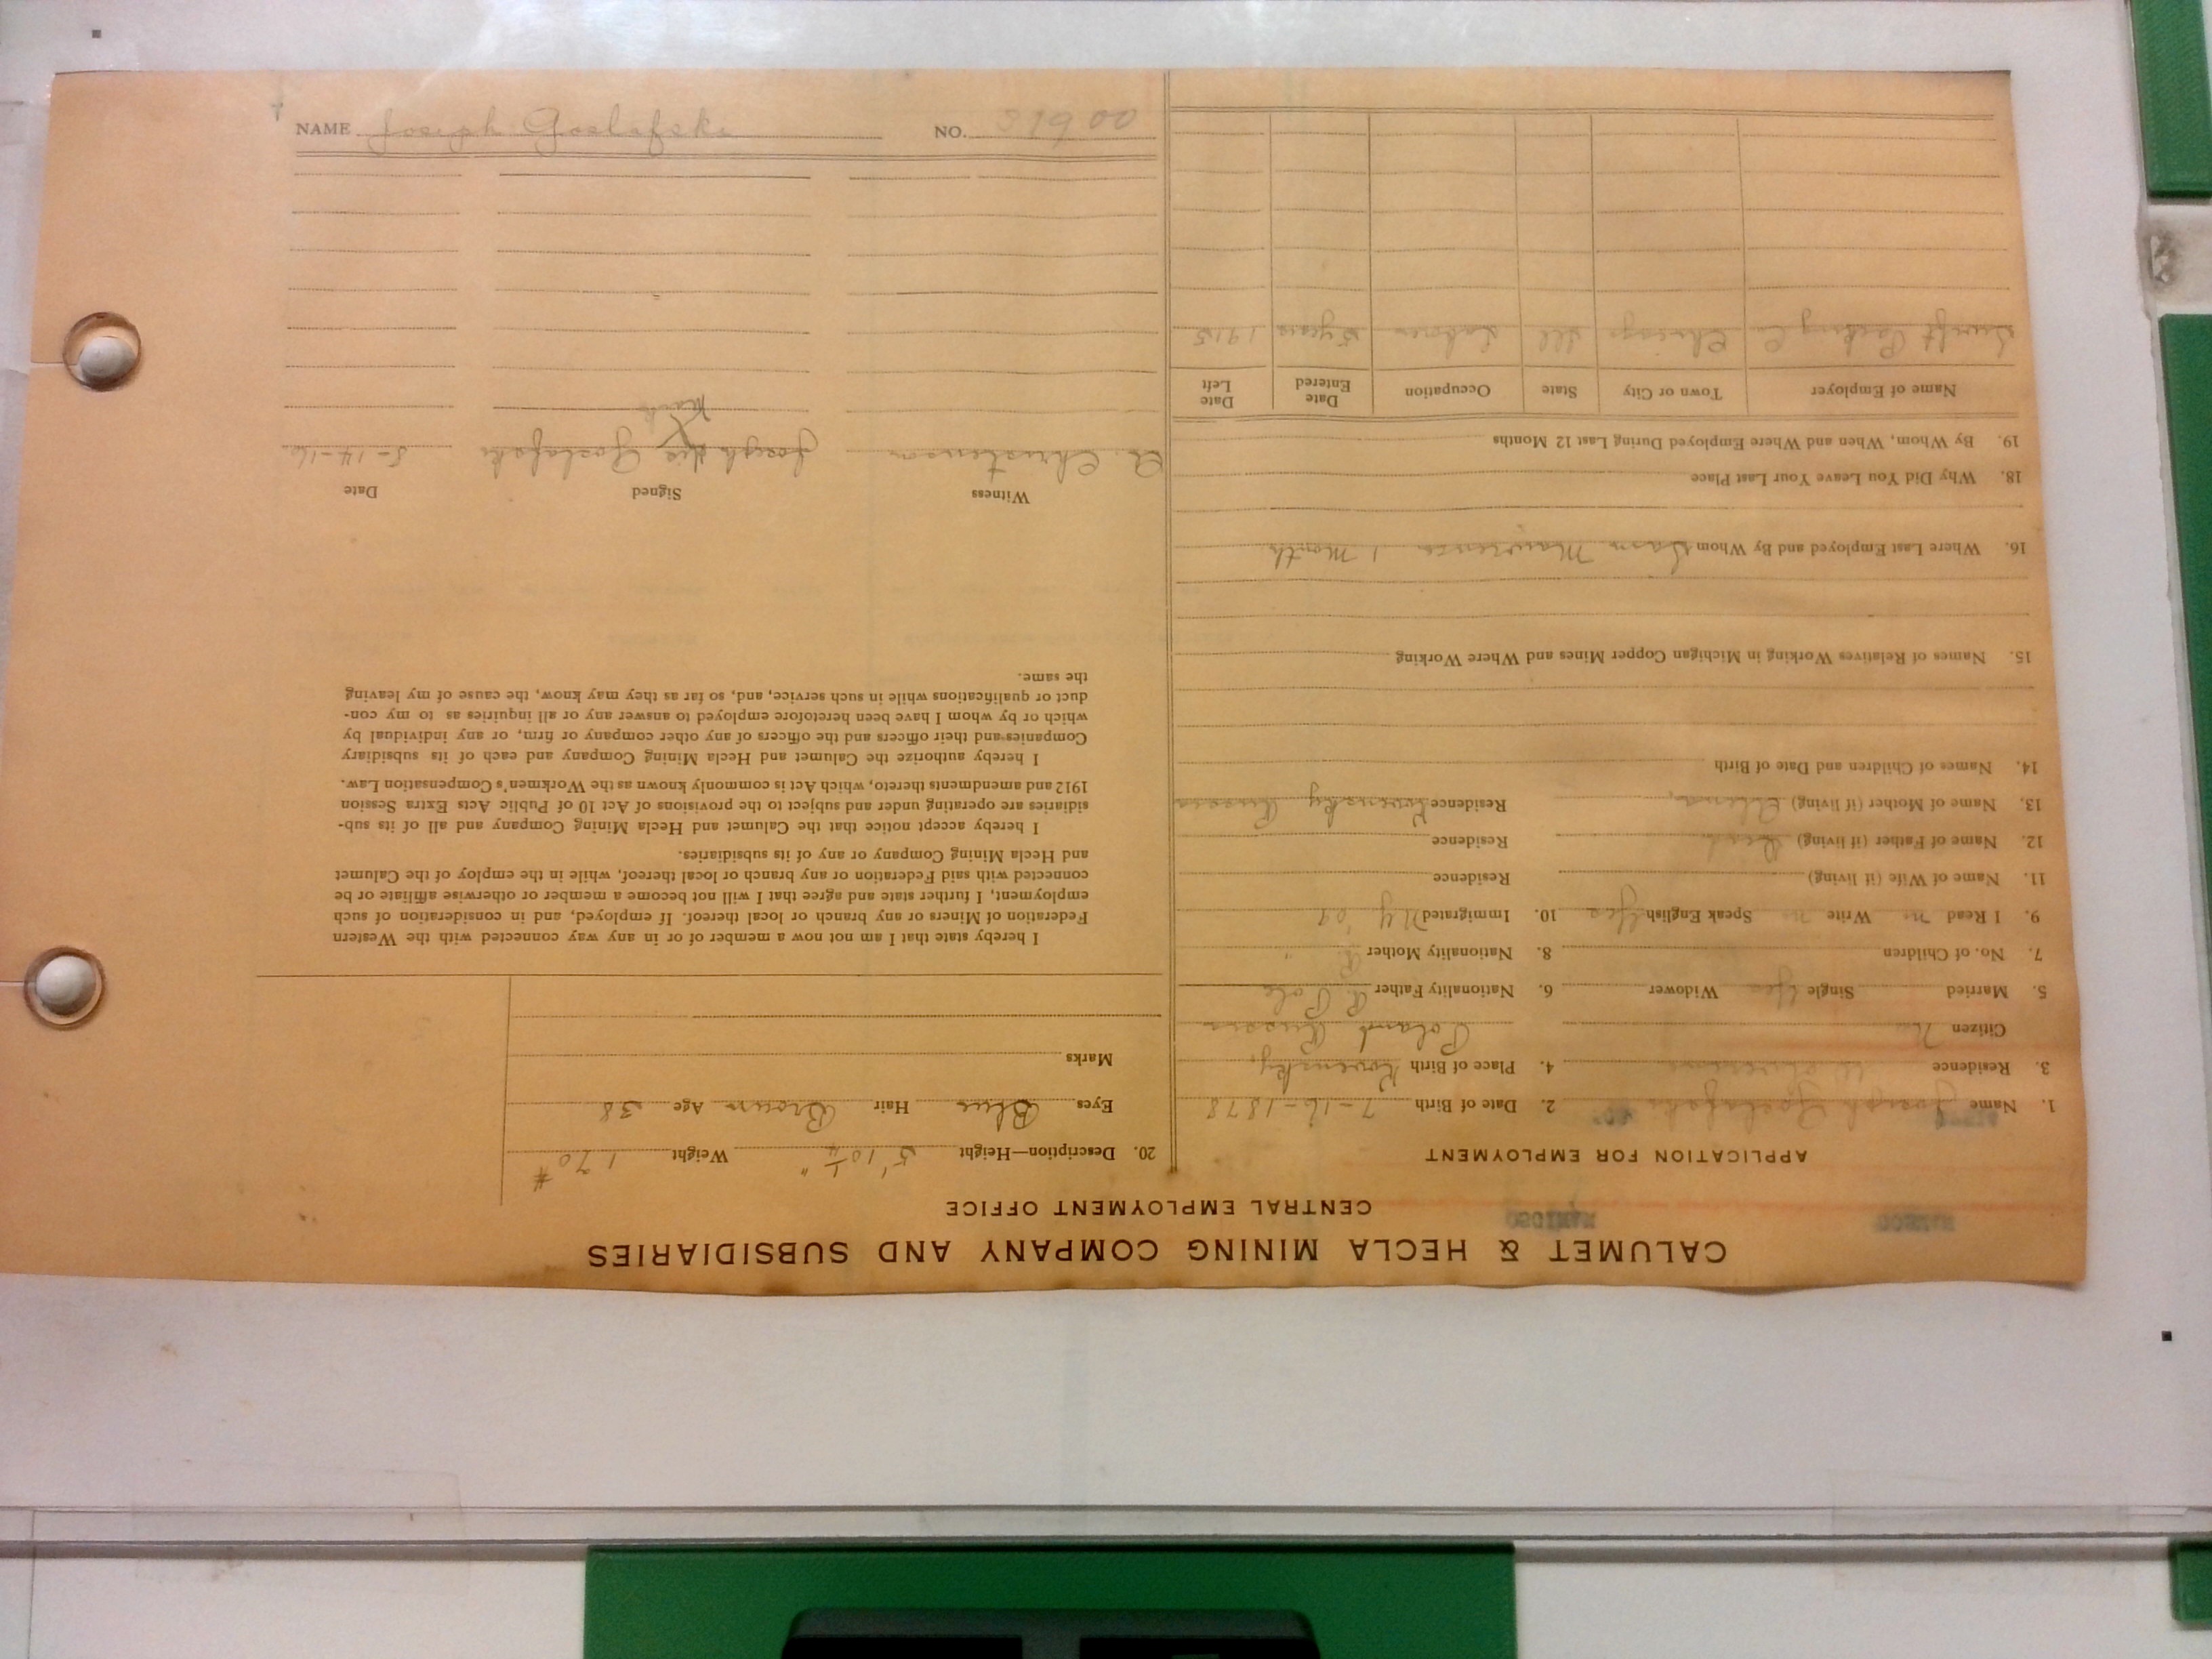 CALUMET & HECLA MINING COMPANY AND SUBSIDIARIES
CENTRAL EMPLOYMENT OFFICE
APPLICATION FOR EMPLOYMENT
1. Name Joseph Goslafski 2. Date of Birth 7-16-1878
3. Residence 4. Place of Birth Kovensky,
Citizen No Poland Russia
5. Married Single Yes Widower 6. Nationality Father R. Pole
7. No. of Children 8. Nationality Mother R. "
9. I Read no Write no Speak English Yes 10. Immigrated NY '09
11. Name of Wife (if living) Residence
12. Name of Father (if living) Dead Residence
13. Name of Mother (if living) Residence Kovensky Russia
14. Names of Children and Date of Birth
15. Names of Relatives Working in Michigan Copper Mines and Where Working
16. Where Last Employed and By Whom 1 Month
18. Why Did You Leave Your Last Place
19. By Whom, When and Where Employed During Last 12 Months
Name of Employer Town or City State Occupation Date Entered Date Left
Swift Packing Co Chicago Ill Laborer 5 years 1915
20. Description—Height 5' 10 1/4" Weight 170 #
Eyes Blue Hair Brown Age 38
Marks
I hereby state that I am not now a member of or in any way connected with the Western
Federation of Miners or any branch or local thereof. If employed, and in consideration of such
employment, I further state and agree that I will not become a member or otherwise affiliate or be
connected with said Federation or any branch or local thereof, while in the employ of the Calumet
and Hecla Mining Company or any of its subsidiaries.
I hereby accept notice that the Calumet and Hecla Mining Company and all of its sub-
sidiaries are operating under and subject to the provisions of Act 10 of Public Acts Extra Session
1912 and amendments thereto, which Act is commonly known as the Workmen's Compensation Law.
I hereby authorize the Calumet and Hecla Mining Company and each of its subsidiary
Companies and their officers and the officers of any other company or firm, or any individual by
which or by whom I have been heretofore employed to answer any or all inquiries as to my con-
duct or qualifications while in such service, and, so far as they may know, the cause of my leaving
the same.
Witness Signed Date
A. Christensen Joseph his X Goslafski 5-14-16
mark
NAME Joseph Goslafski NO. 31900